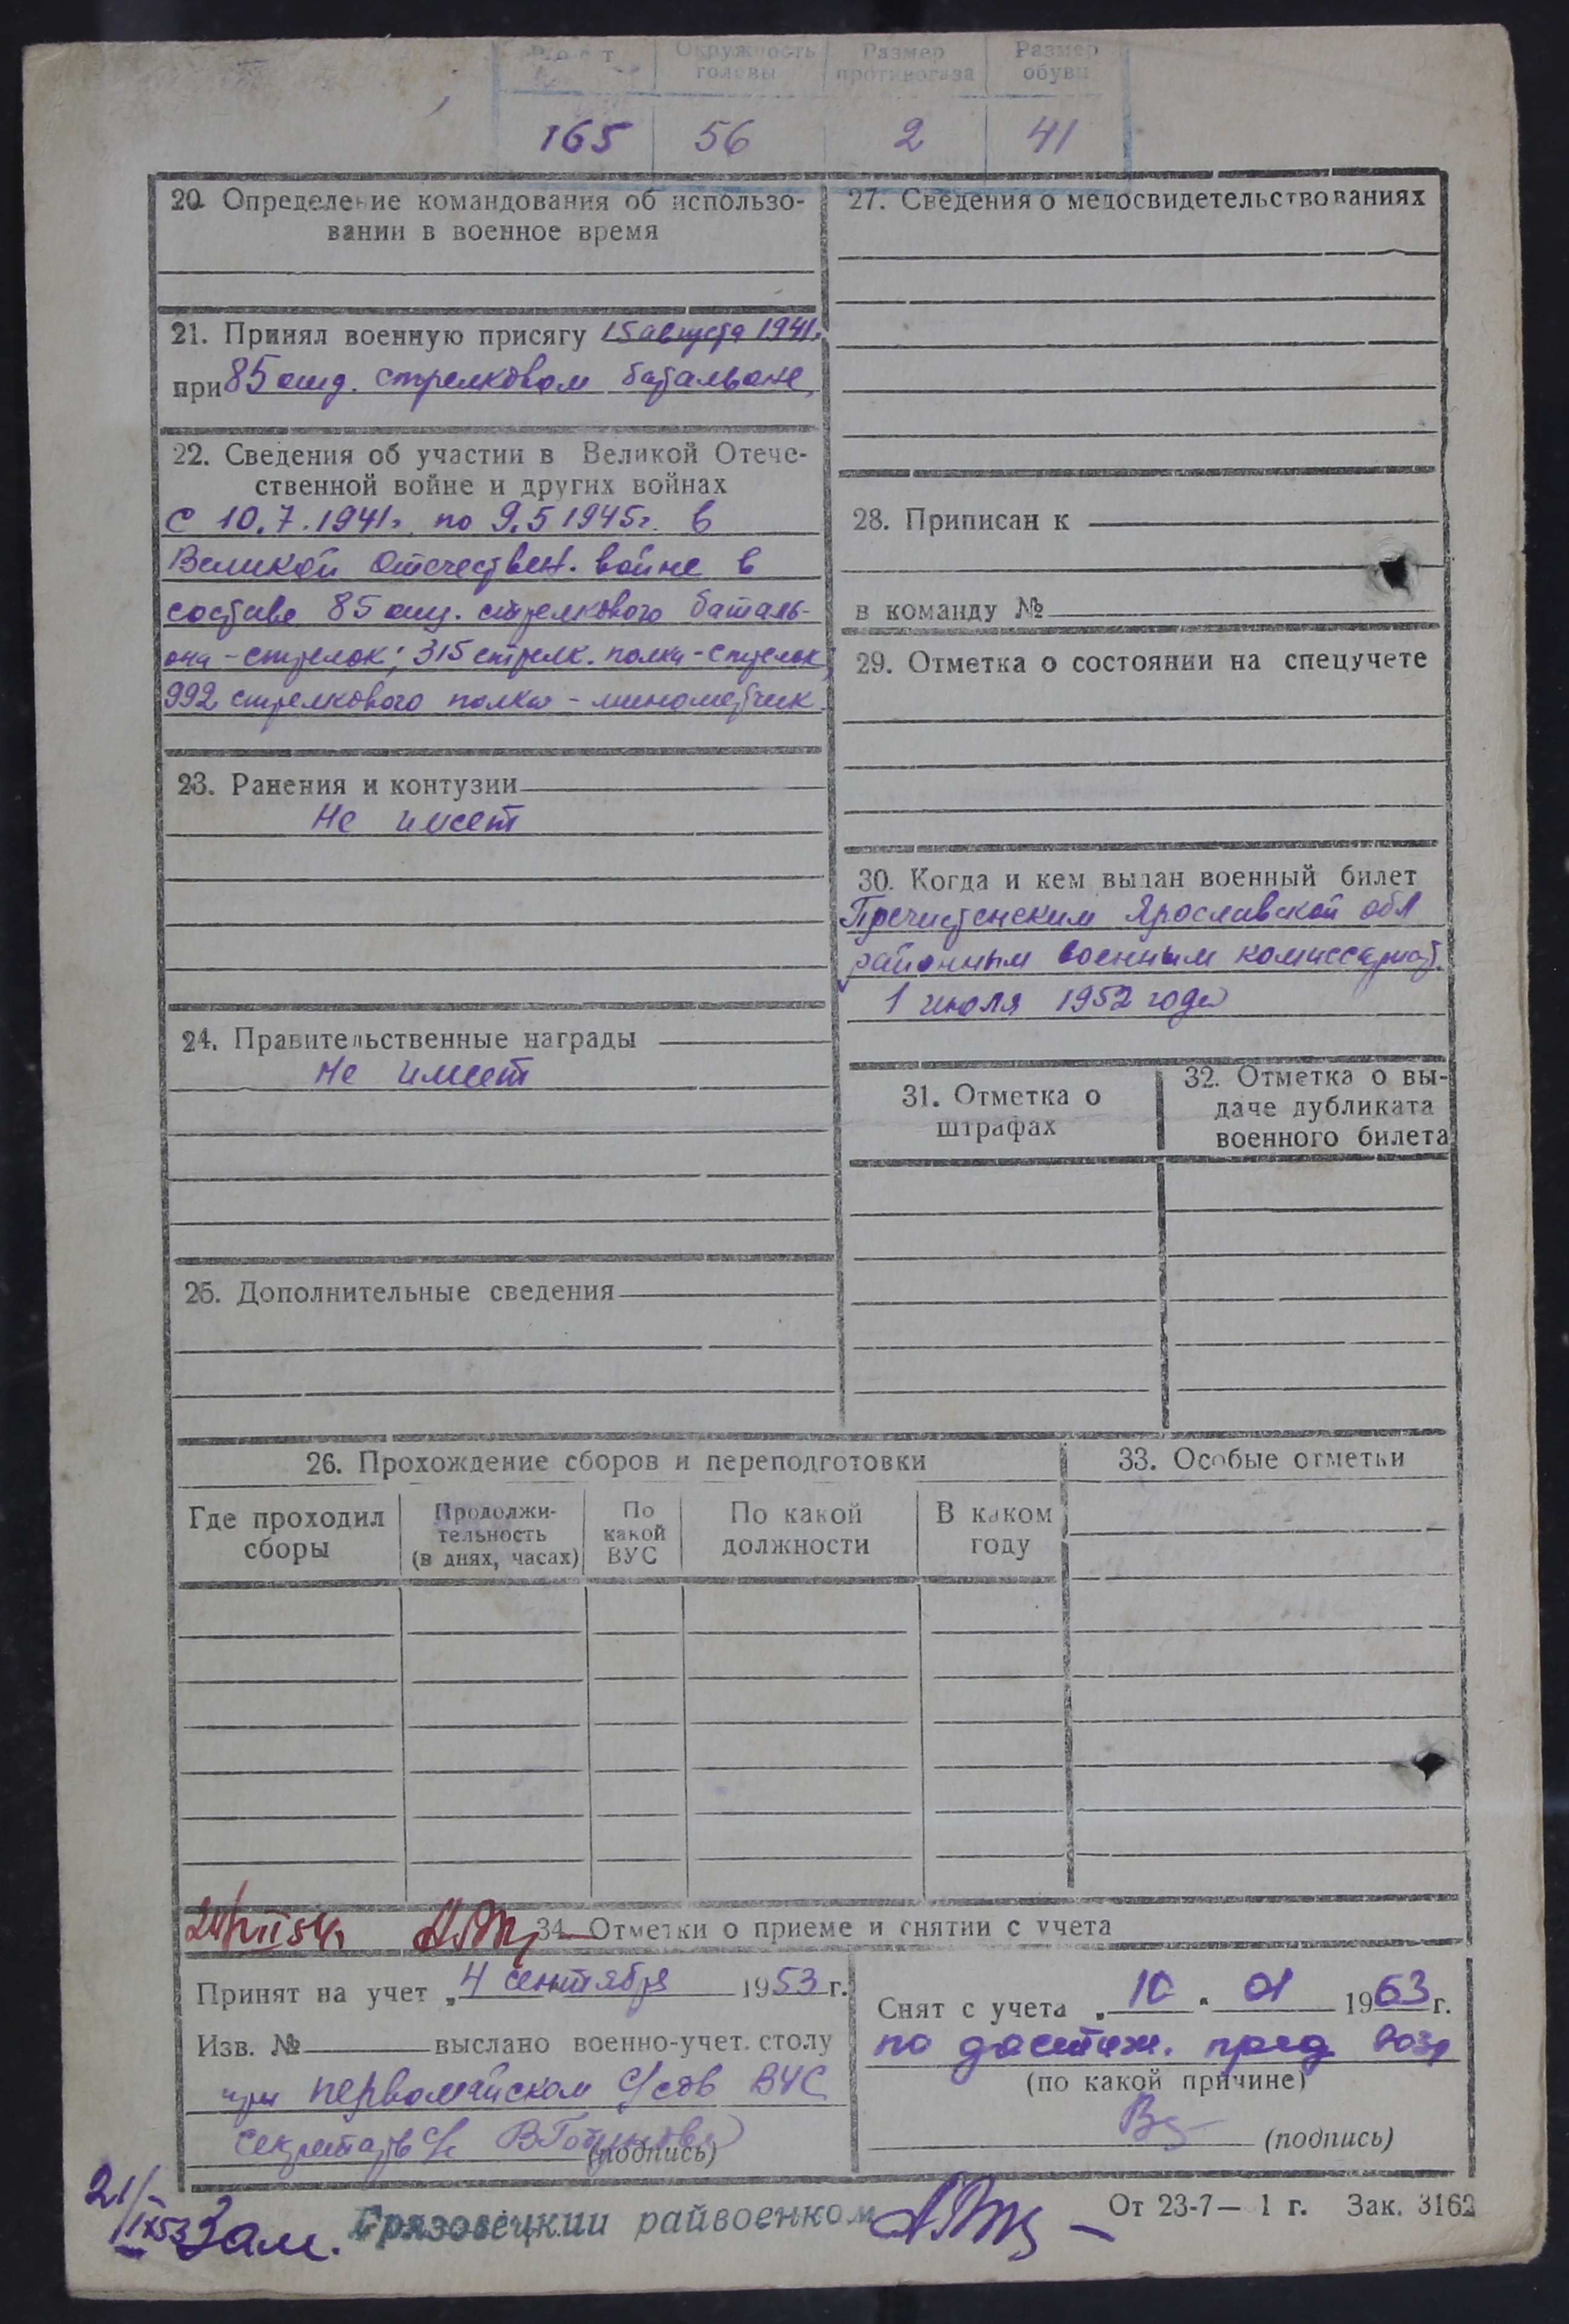 Рост Окружность головы Размер противогаза Размер обуви
165 56 2 41
20. Определение командования об использо-
вании в военное время
21. Принял военную присягу 15 августа 1941г.
при 85 отд. стрелковом батальоне
22. Сведения об участии в Великой Отече-
ственной войне и других войнах
С 10.7.1941г. по 9.5 1945г. в
Великой Отечествен. войне в
составе 85 отд. стрелкового баталь-
она - стрелок; 315 стрелк. полка - стрелок,
992 стрелкового полка - минометчик
23. Ранения и контузии
Не имеет
24. Правительственные награды
Не имеет
25. Дополнительные сведения
27. Сведения о медосвидетельствованиях
28. Приписан к
в команду №
29. Отметка о состоянии на спецучете
30. Когда и кем выдан военный билет
Пречистенским Ярославской обл
районным военным комиссариат.
1 июля 1952 года
31. Отметка о
штрафах
32. Отметка о вы-
даче дубликата
военного билета
26. Прохождение сборов и переподготовки
Где проходил
сборы
Продолжи-
тельность
(в днях, часах)
По
какой
ВУС
По какой
должности
В каком
году
33. Особые отметки
34. Отметки о приеме и снятии с учета
Принят на учет „4 сентября 1953 г.
Изв. № выслано военно-учет. столу
при Первомайском с/сов ВУС
секретарь с/с
(подпись)
Снят с учета „10" 01 1963 г.
по достиж. пред возр
(по какой причине)
(подпись)
21/IX53 Зам. Грязовецкий райвоенком
От 23-7— 1 г. Зак. 3162